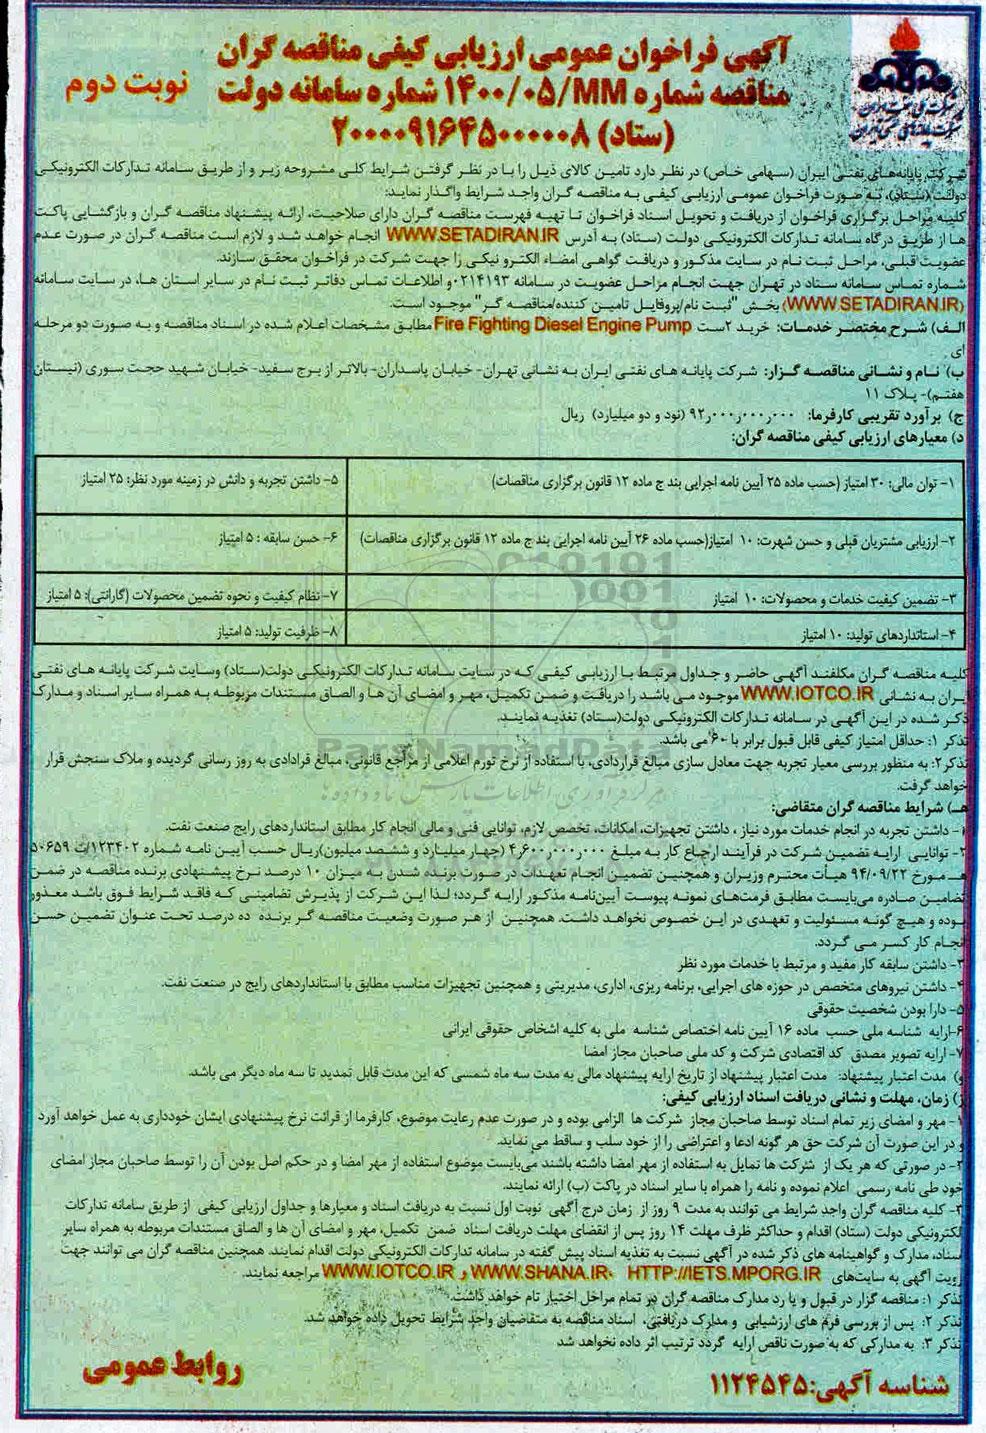 آگهی فراخوان عمومی ارزیابی کیفی مناقصه گران
مناقصه شماره ۱۴۰۰/۰۵/MM شماره سامانه دولت
(ستاد) ۲۰۰۰۰۹۱۶۴۵۰۰۰۰۰۸
نوبت دوم
شرکت پایانه‌های نفتی ایران (سهامی خاص) در نظر دارد تامین کالای ذیل را با در نظر گرفتن شرایط کلی مشروحه زیر و از طریق سامانه تدارکات الکترونیکی
دولت (ستاد)، به صورت فراخوان عمومی ارزیابی کیفی به مناقصه گران واجد شرایط واگذار نماید:
کلیه مراحل برگزاری فراخوان از دریافت و تحویل اسناد فراخوان تا تهیه فهرست مناقصه گران دارای صلاحیت، ارائه پیشنهاد مناقصه گران و بازگشایی پاکت
ها از طریق درگاه سامانه تدارکات الکترونیکی دولت (ستاد) به آدرس WWW.SETADIRAN.IR انجام خواهد شد و لازم است مناقصه گران در صورت عدم
عضویت قبلی، مراحل ثبت نام در سایت مذکور و دریافت گواهی امضاء الکترو نیکی را جهت شرکت در فراخوان محقق سازند.
شماره تماس سامانه ستاد در تهران جهت انجام مراحل عضویت در سامانه ۰۲۱۴۱۹۳ و اطلاعات تماس دفاتر ثبت نام در سایر استان ها، در سایت سامانه
(WWW.SETADIRAN.IR) بخش "ثبت نام/پروفایل تامین کننده/مناقصه گر" موجود است.
الف) شرح مختصر خدمات: خرید ۲ست Fire Fighting Diesel Engine Pump مطابق مشخصات اعلام شده در اسناد مناقصه و به صورت دو مرحله
ای
ب) نام و نشانی مناقصه گزار: شرکت پایانه های نفتی ایران به نشانی تهران- خیابان پاسداران- بالاتر از برج سفید- خیابان شهید حجت سوری (نیستان
هفتم)- پلاک ۱۱
ج) برآورد تقریبی کارفرما: ۹۲,۰۰۰,۰۰۰,۰۰۰ (نود و دو میلیارد) ریال
د) معیارهای ارزیابی کیفی مناقصه گران:
۱- توان مالی: ۳۰ امتیاز (حسب ماده ۲۵ آیین نامه اجرایی بند ج ماده ۱۲ قانون برگزاری مناقصات)
۵- داشتن تجربه و دانش در زمینه مورد نظر: ۲۵ امتیاز
۲- ارزیابی مشتریان قبلی و حسن شهرت: ۱۰ امتیاز(حسب ماده ۲۶ آیین نامه اجرایی بند ج ماده ۱۲ قانون برگزاری مناقصات)
۶- حسن سابقه : ۵ امتیاز
۳- تضمین کیفیت خدمات و محصولات: ۱۰ امتیاز
۷- نظام کیفیت و نحوه تضمین محصولات (گارانتی): ۵ امتیاز
۴- استانداردهای تولید: ۱۰ امتیاز
۸- ظرفیت تولید: ۵ امتیاز
کلیه مناقصه گران مکلفند آگهی حاضر و جداول مرتبط با ارزیابی کیفی که در سایت سامانه تدارکات الکترونیکی دولت(ستاد) وسایت شرکت پایانه های نفتی
ایران به نشانی WWW.IOTCO.IR موجود می باشد را دریافت و ضمن تکمیل، مهر و امضای آن ها و الصاق مستندات مربوطه به همراه سایر اسناد و مدارک
ذکر شده در این آگهی در سامانه تدارکات الکترونیکی دولت(ستاد) تغذیه نمایند.
تذکر ۱: حداقل امتیاز کیفی قابل قبول برابر با ۶۰ می باشد.
تذکر۲: به منظور بررسی معیار تجربه جهت معادل سازی مبالغ قراردادی، با استفاده از نرخ تورم اعلامی از مراجع قانونی، مبالغ قرادادی به روز رسانی گردیده و ملاک سنجش قرار
خواهد گرفت.
هـ) شرایط مناقصه گران متقاضی:
۱- داشتن تجربه در انجام خدمات مورد نیاز ، داشتن تجهیزات، امکانات، تخصص لازم، توانایی فنی و مالی انجام کار مطابق استانداردهای رایج صنعت نفت.
۲- توانایی ارایه تضمین شرکت در فرآیند ارجاع کار به مبلغ ۴,۶۰۰,۰۰۰,۰۰۰ (چهار میلیارد و ششصد میلیون)ریال حسب آیین نامه شماره ۱۲۳۴۰۲/ت ۵۰۶۵۹
هـ مورخ ۹۴/۰۹/۲۲ هیأت محترم وزیران و همچنین تضمین انجام تعهدات در صورت برنده شدن به میزان ۱۰ درصد نرخ پیشنهادی برنده مناقصه در ضمن
تضامین صادره می‌بایست مطابق فرمت‌های نمونه پیوست آیین‌نامه مذکور ارایه گردد؛ لذا این شرکت از پذیرش تضامینی که فاقد شرایط فوق باشد معذور
بوده و هیچ گونه مسئولیت و تعهدی در این خصوص نخواهد داشت. همچنین از هر صورت وضعیت مناقصه گر برنده ده درصد تحت عنوان تضمین حسن
انجام کار کسر می گردد.
۳- داشتن سابقه کار مفید و مرتبط با خدمات مورد نظر
۴- داشتن نیروهای متخصص در حوزه های اجرایی، برنامه ریزی، اداری، مدیریتی و همچنین تجهیزات مناسب مطابق با استانداردهای رایج در صنعت نفت.
۵- دارا بودن شخصیت حقوقی
۶-ارایه شناسه ملی حسب ماده ۱۶ آیین نامه اختصاص شناسه ملی به کلیه اشخاص حقوقی ایرانی
۷- ارایه تصویر مصدق کد اقتصادی شرکت و کد ملی صاحبان مجاز امضا
و) مدت اعتبار پیشنهاد: مدت اعتبار پیشنهاد از تاریخ ارایه پیشنهاد مالی به مدت سه ماه شمسی که این مدت قابل تمدید تا سه ماه دیگر می باشد.
ز) زمان، مهلت و نشانی دریافت اسناد ارزیابی کیفی:
۱- مهر و امضای زیر تمام اسناد توسط صاحبان مجاز شرکت ها الزامی بوده و در صورت عدم رعایت موضوع، کارفرما از قرائت نرخ پیشنهادی ایشان خودداری به عمل خواهد آورد
و در این صورت آن شرکت حق هر گونه ادعا و اعتراضی را از خود سلب و ساقط می نماید.
۲- در صورتی که هر یک از شرکت ها تمایل به استفاده از مهر امضا داشته باشند می‌بایست موضوع استفاده از مهر امضا و در حکم اصل بودن آن را توسط صاحبان مجاز امضای
خود طی نامه رسمی اعلام نموده و نامه را همراه با سایر اسناد در پاکت (ب) ارائه نمایند.
۳- کلیه مناقصه گران واجد شرایط می توانند به مدت ۹ روز از زمان درج آگهی نوبت اول نسبت به دریافت اسناد و معیارها و جداول ارزیابی کیفی از طریق سامانه تدارکات
الکترونیکی دولت (ستاد) اقدام و حداکثر ظرف مهلت ۱۴ روز پس از انقضای مهلت دریافت اسناد ضمن تکمیل، مهر و امضای آن ها و الصاق مستندات مربوطه به همراه سایر
اسناد، مدارک و گواهینامه های ذکر شده در آگهی نسبت به تغذیه اسناد پیش گفته در سامانه تدارکات الکترونیکی دولت اقدام نمایند. همچنین مناقصه گران می توانند جهت
رویت آگهی به سایت‌های HTTP://IETS.MPORG.IR ،WWW.SHANA.IR و WWW.IOTCO.IR مراجعه نمایند.
تذکر ۱: مناقصه گزار در قبول و یا رد مدارک مناقصه گران در تمام مراحل اختیار تام خواهد داشت.
تذکر ۲: پس از بررسی فرم های ارزشیابی و مدارک دریافتی، اسناد مناقصه به متقاضیان واجد شرایط تحویل داده خواهد شد.
تذکر ۳: به مدارکی که به صورت ناقص ارایه گردد ترتیب اثر داده نخواهد شد
شناسه آگهی:۱۱۲۴۵۴۵
روابط عمومی
ParsNamadData